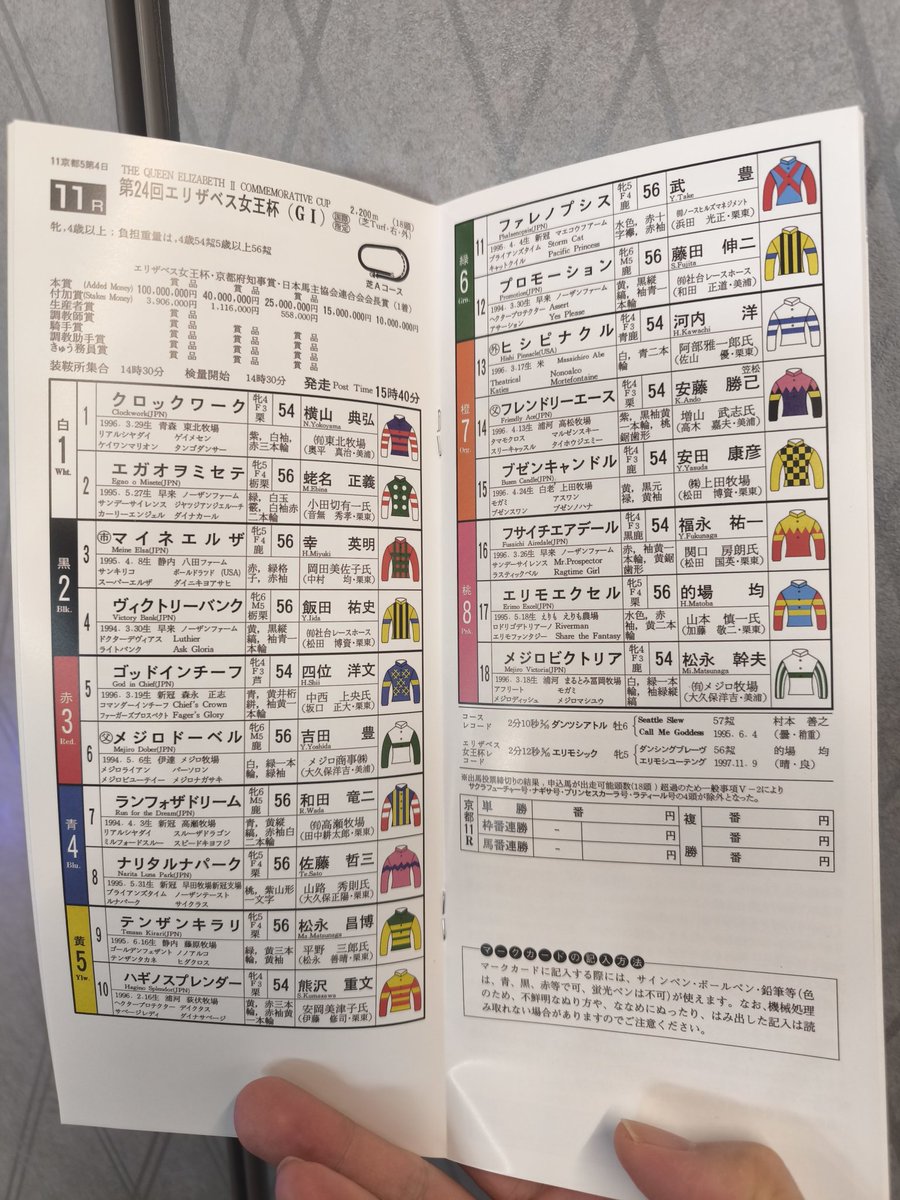 11京都5第4日
THE QUEEN ELIZABETH II COMMEMORATIVE CUP
11R
第24回エリザベス女王杯(GI)
国際
指定
2,200m (18頭)
(芝Turf・右・外)
牝,4歳以上:負担重量は,4歳54瓩5歳以上56瓩
芝Aコース
エリザベス女王杯・京都府知事賞・日本馬主協会連合会会長賞(1着)
本賞 (Added Money) 100,000,000円 40,000,000円 25,000,000円 15,000,000円 10,000,000円
付加賞(Stakes Money) 3,906,000円 1,116,000円 558,000円
生産者賞 賞品 賞品 賞品
調教師賞 賞品 賞品 賞品
騎手賞 賞品 賞品 賞品
調教助手賞 賞品 賞品 賞品
きゅう務員賞 賞品 賞品 賞品
装鞍所集合 14時30分 検量開始 14時30分 発走 Post Time 15時40分
白
1
Wht.
1
クロックワーク
Clockwork(JPN)
1996. 3.29生 青森 東北牧場
リアルシヤダイ ゲイメセン
ケイワンマリオン タンゴダンサー
牝4
F3
栗
54
横山 典弘
N.Yokoyama
紫,白袖,赤三本輪
㈲東北牧場
(奥平 真治・美浦)
2
エガオヲミセテ
Egao o Misete(JPN)
1995. 5.27生 早来 ノーザンファーム
サンデーサイレンス ジヤツジアンジエルーチ
カーリーエンジェル ダイナカール
牝5
F4
栃栗
56
蛯名 正義
M.Ebina
緑,白玉霰,白袖赤二本輪
小田切有一氏
(音無 秀孝・栗東)
黒
2
Blk.
3
市マイネエルザ
Meine Elsa(JPN)
1995. 4. 8生 静内 八田ファーム
サンキリコ ボールドラツド (USA)
スーパーエルザ ダイニキヨアサヒ
牝5
F4
鹿
56
幸 英明
H.Miyuki
赤,緑格子,赤袖
岡田美佐子氏
(中村 均・栗東)
4
ヴィクトリーバンク
Victory Bank(JPN)
1994. 3.30生 早来 ノーザンファーム
ドクターデヴィアス Luthier
ライトバンク Ask Gloria
牝6
M5
栃栗
56
飯田 祐史
Y.Iida
黄,黒縦縞,袖青一本輪
㈲社台レースホース
(松田 博資・栗東)
赤
3
Red.
5
ゴッドインチーフ
God in Chief(JPN)
1996. 3.19生 新冠 森永 正志
コマンダーインチーフ Chief's Crown
ファーガーズプロスペクト Fager's Glory
牝4
F3
芦
54
四位 洋文
H.Shii
青,黄井桁絣,袖黄一本輪
中西 上央氏
(坂口 正大・栗東)
6
父メジロドーベル
Mejiro Dober(JPN)
1994. 5. 6生 伊達 メジロ牧場
メジロライアン パーソロン
メジロビユーテイー メジロナガサキ
牝6
M5
鹿
56
吉田 豊
Y.Yoshida
白,緑一本輪,緑袖
メジロ商事㈱
(大久保洋吉・美浦)
青
4
Blu.
7
ランフォザドリーム
Run for the Dream(JPN)
1994. 4. 3生 新冠 高瀬牧場
リアルシヤダイ スルーザドラゴン
ミルフォードスルー スピードキヨフジ
牝6
M5
鹿
56
和田 竜二
R.Wada
青,黄縦縞,赤袖白二本輪
㈲高瀬牧場
(田中耕太郎・栗東)
8
ナリタルナパーク
Narita Luna Park(JPN)
1995. 5.31生 新冠 早田牧場新冠支場
ブライアンズタイム ノーザンテースト
ルナパーク サイクラス
牝5
F4
栗
56
佐藤 哲三
Te.Sato
桃,紫山形一文字
山路 秀則氏
(大久保正陽・栗東)
黄
5
Ylw.
9
テンザンキラリ
Tenzan Kirari(JPN)
1995. 6.16生 静内 藤原牧場
ゴールデンフェザント ノノアルコ
テンザンタカネ ヒダクロス
牝5
F4
栗
56
松永 昌博
Ma.Matsunaga
緑,黄三本輪,黄袖
平野 三郎氏
(松永 善晴・栗東)
10
ハギノスプレンダー
Hagino Splendor(JPN)
1996. 2.16生 浦河 荻伏牧場
ヘクタープロテクター デイクタス
サベージレディ ダイナサベージ
牝4
F3
栗
54
熊沢 重文
S.Kumazawa
黄,赤三本輪,赤袖黄一本輪
安岡美津子氏
(伊藤 修司・栗東)
緑
6
Grn.
11
ファレノプシス
Phalaenopsis(JPN)
1995. 4. 4生 新冠 マエコウファーム
ブライアンズタイム Storm Cat
キャットクイル Pacific Princess
牝5
F4
鹿
56
武 豊
Y.Take
水色,赤十字襷,赤袖
㈱ノースヒルズマネジメント
(浜田 光正・栗東)
12
プロモーション
Promotion(JPN)
1994. 3.30生 早来 ノーザンファーム
ヘクタープロテクター Assert
アサーション Yes Please
牝6
M5
鹿
56
藤田 伸二
S.Fujita
黄,黒縦縞,袖青一本輪
㈲社台レースホース
(和田 正道・美浦)
橙
7
Org.
13
外ヒシピナクル
Hishi Pinnacle(USA)
1996. 3.17生 米 Masaichiro Abe
Theatrical Nonoalco
Katies Mortefontaine
牝4
F3
青鹿
54
河内 洋
H.Kawachi
白,青二本輪
阿部雅一郎氏
(佐山 優・栗東)
14
父フレンドリーエース
Friendly Ace(JPN)
1996. 4.13生 浦河 高松牧場
タマモクロス マルゼンスキー
スリーキャスル タイホウジユピター
牝4
F3
鹿
54
笠松
安藤 勝己
K.Ando
紫,黒袖黄一本輪,桃鋸歯形
増山 武志氏
(高木 嘉夫・美浦)
15
ブゼンキャンドル
Buzen Candle(JPN)
1996. 4.24生 白老 上田牧場
モガミ アスワン
ブゼンスワン ブゼンノハナ
牝4
F3
鹿
54
安田 康彦
Y.Yasuda
黄,黒元禄,黄袖
㈱上田牧場
(松田 博資・栗東)
桃
8
Pnk.
16
フサイチエアデール
Fusaichi Airedale(JPN)
1996. 3.26生 早来 ノーザンファーム
サンデーサイレンス Mr.Prospector
ラスティックベル Ragtime Girl
牝4
F3
黒鹿
54
福永 祐一
Y.Fukunaga
赤,袖黄一本輪,黄鋸歯形
関口 房朗氏
(松田 国英・栗東)
17
エリモエクセル
Erimo Excel(JPN)
1995. 5.18生 えりも えりも農場
ロドリゴデトリアーノ Riverman
エリモファンタジー Share the Fantasy
牝5
F4
栗
56
的場 均
H.Matoba
水色,赤袖,黄二本輪
山本 慎一氏
(加藤 敬二・栗東)
18
メジロビクトリア
Mejiro Victoria(JPN)
1996. 3.18生 浦河 まるとみ冨岡牧場
アフリート モガミ
メジロディッシュ メジロマシユウ
牝4
F3
鹿
54
松永 幹夫
Mi.Matsunaga
白,緑一本輪,袖緑縦縞
㈲メジロ牧場
(大久保洋吉・美浦)
コース
レコード 2分10秒2/10 ダンツシアトル 牡6 Seattle Slew Call Me Goddess 57瓩 1995. 6. 4 村本 善之 (曇・稍重)
エリザベス
女王杯レコード 2分12秒2/10 エリモシック 牝5 ダンシングブレーヴ エリモシユーテング 56瓩 1997.11. 9 的場 均 (晴・良)
※出馬投票締切りの結果,申込馬が出走可能頭数(18頭)超過のため一般事項V-2により
サクラフューチャー号・ナギサ号・プリンセスカーラ号・ラティール号の4頭が除外となった。
京都11R
単勝 番 円
枠番連勝 - 円
馬番連勝 - 円
複勝 番 円
番 円
番 円
マークカードの記入方法
マークカードに記入する際には、サインペン・ボールペン・鉛筆等(色
は、青、黒、赤等で可、蛍光ペンは不可)が使えます。なお、機械処理
のため、不鮮明なぬり方や、ななめにぬったり、はみ出した記入は読
み取れない場合がありますのでご注意ください。